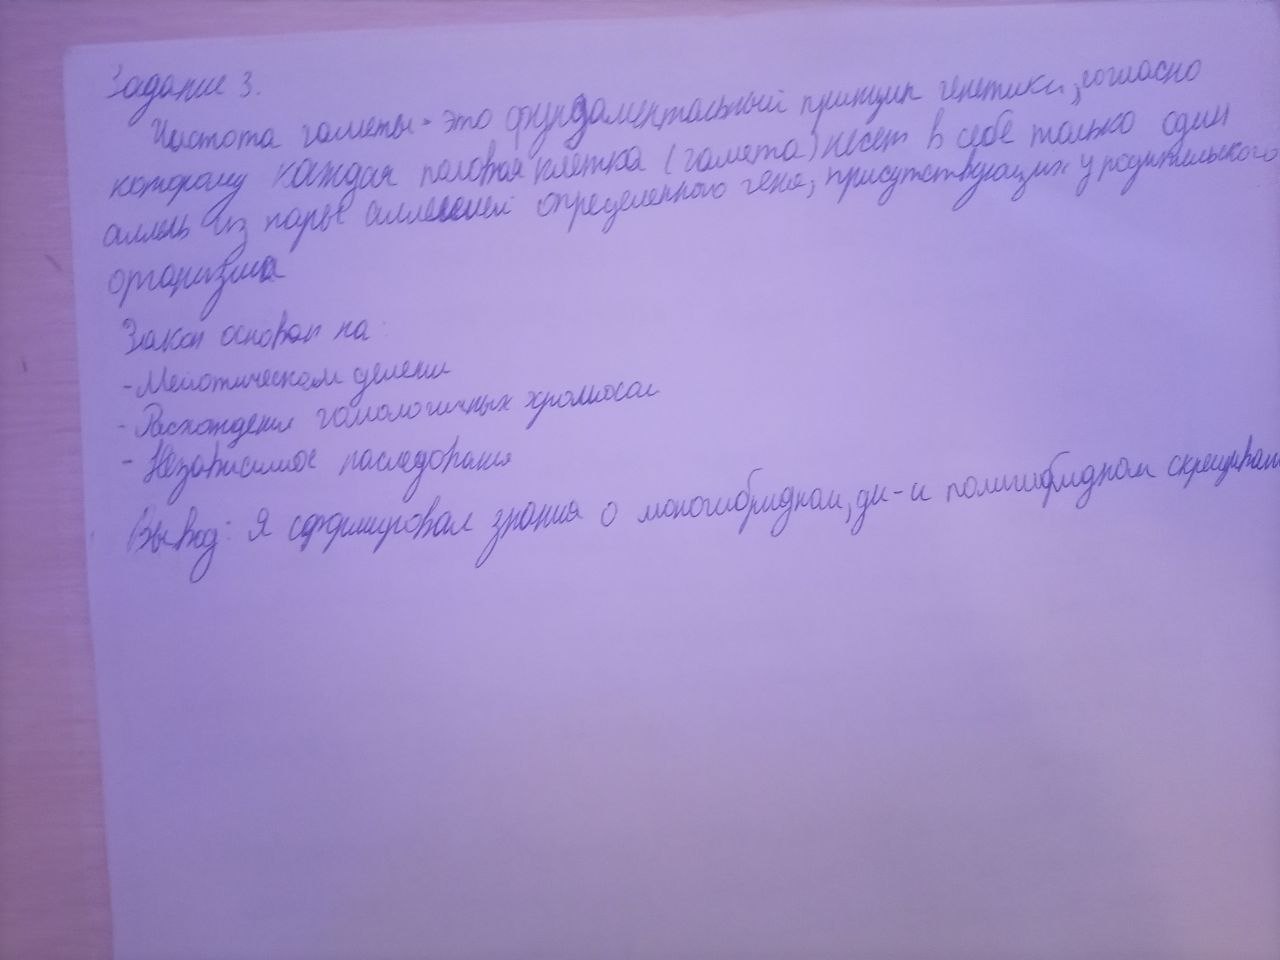 Задание 3.
Чистота гаметы - это фундаментальный принцип генетики, согласно
которому каждая половая клетка (гамета) несет в себе только один
аллель из пары аллелей определенного гена, присутствующих у родительского
организма
Закон основан на:
- Мейотическом делении
- Расхождения гомологичных хромосом
- Независимое наследования
Вывод: Я сформировал знания о моногибридном, ди- и полигибридном скрещивани